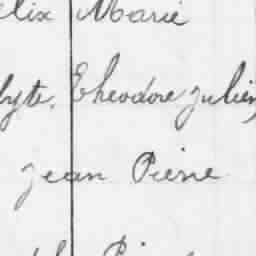 elix Marie
lyte, Theodore Julien,
Jean Pierre